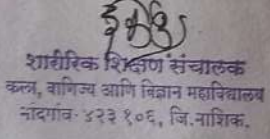 शारीरिक शिक्षण संचालक
कला, वाणिज्य आणि विज्ञान महाविद्यालय
नांदगांव-४२३१०६, जि.नाशिक.